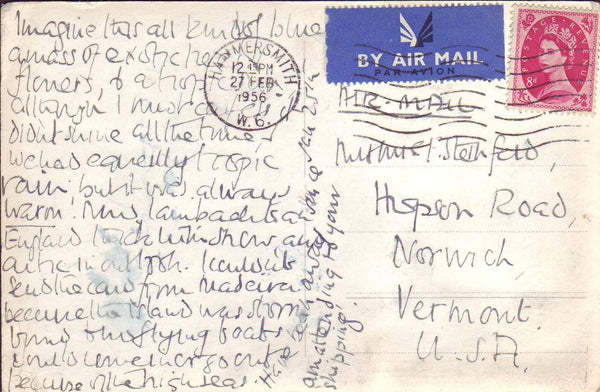 Imagine this all kinds of blue
a mass of exotic
flowers & a tropic
although I must
didn't shine all the time,
we had equally tropic
rain, but it was always
warm. Now I am back in
England thick with snow an
arctic in outlook. I couldn't
send the card from Madeira
because the island was storm
bound & the flying boats
could come in or go out
because of the high seas.
Have been away since Jan 25th
am attending to your
shipping!
HAMMERSMITH
12 45 PM
27 FEB
1956
W. 6.
BY AIR MAIL
PAR AVION
POSTAGE REVENUE
8D
AIR-MAIL
Hopson Road,
Norwich,
Vermont.
U.S.A.